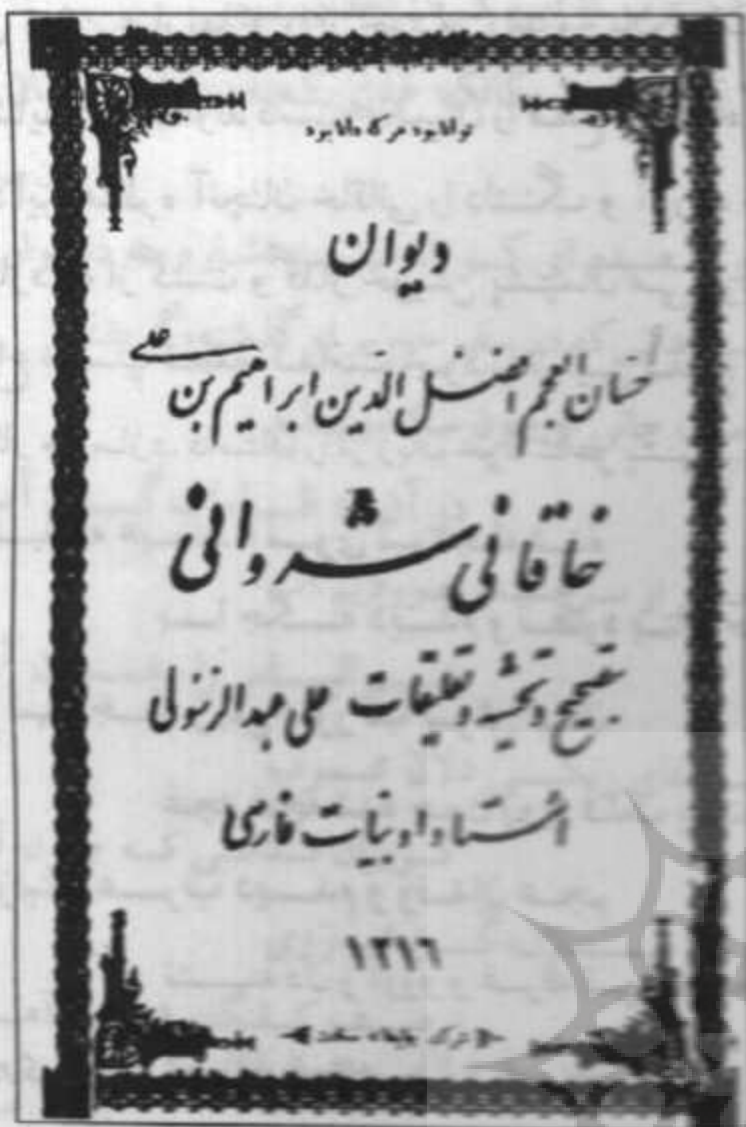 توانا بود هر که دانا بود
دیوان
حسان العجم افضل الدین ابراهیم بن علی
خاقانی شروانی
بتصحیح و تحشیه و تعلیقات علی عبدالرسولی
استاد ادبیات فارسی
۱۳۱۶
شرکت چاپخانه سعادت